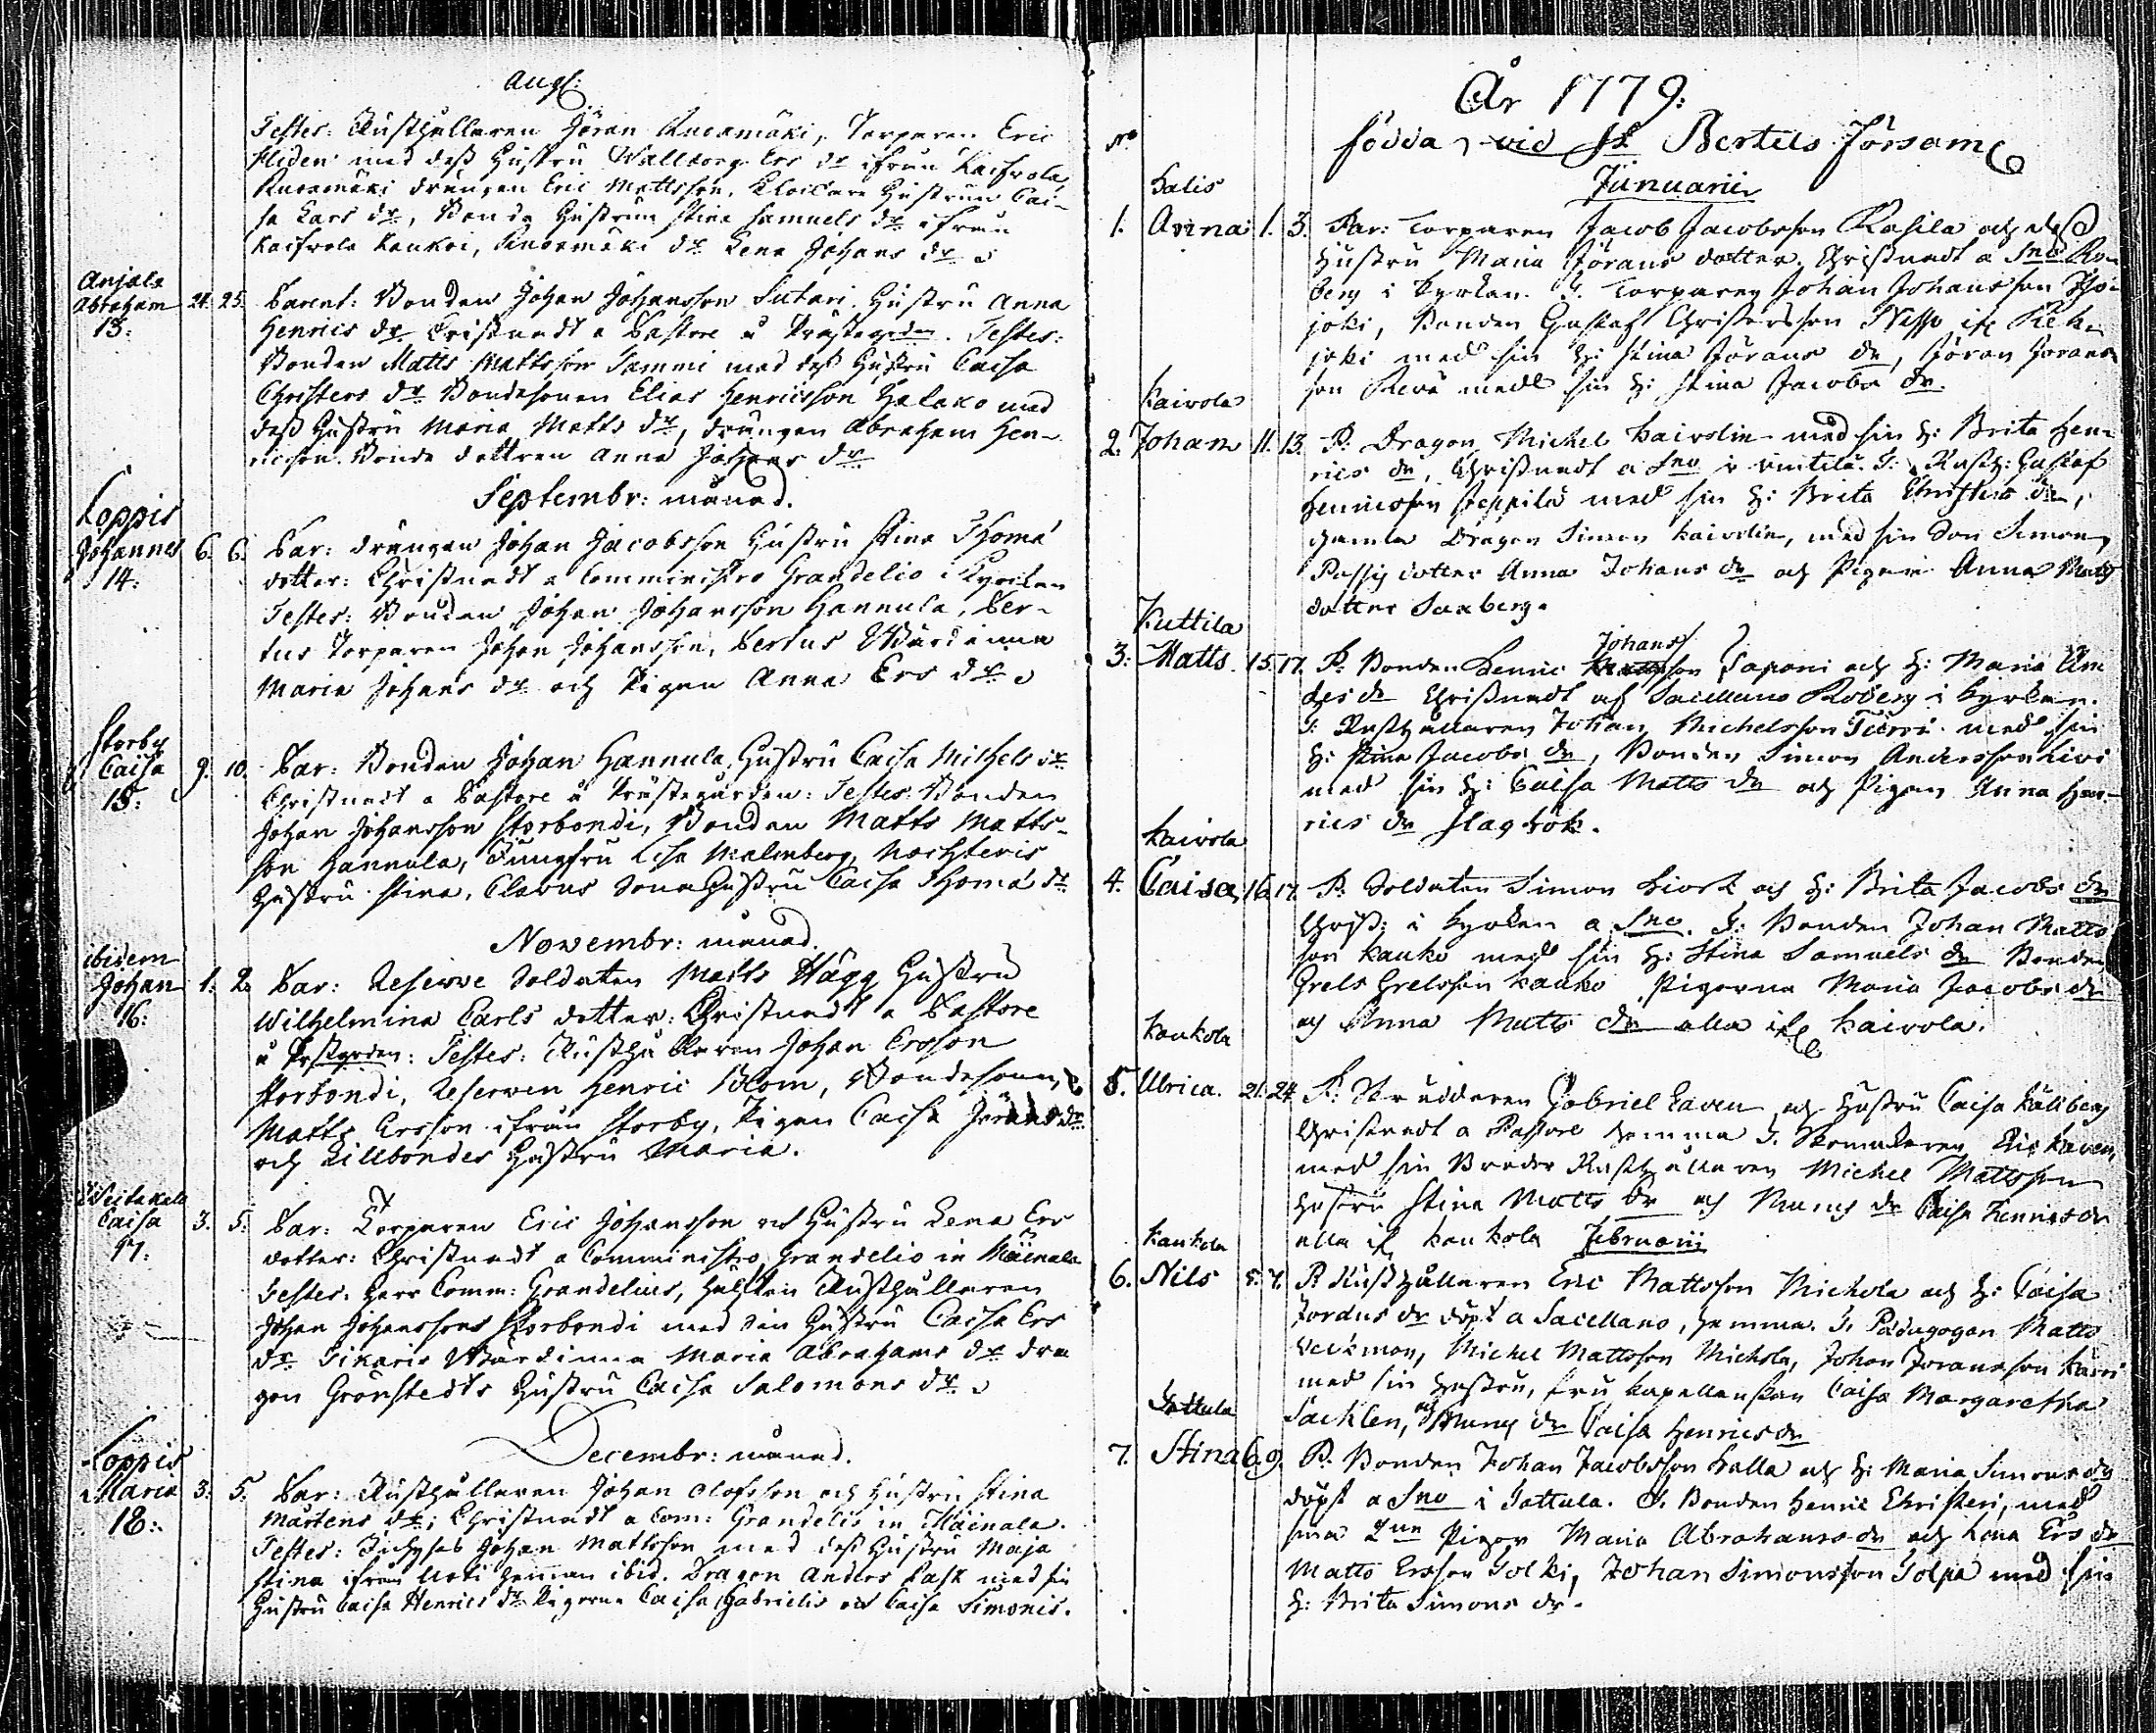 Aug:
Testes: Rusthållaren Jöran Knuamäki, Torparen Eric
Hliden med dess Hustru Wallborg Ers dr ifrån Kaifvola
drängen Eric Mattsson, Hustrun Cai-
sa Lars dr, Bonde Hustrun Stina Samuels dr ifrån
Kaifvola Kaukoi, dr Lena Johans dr
Anjala
Abraham 24. 25. Parent: Bonden Johan Johansson Sutari. Hustru Anna
13: Henrics dr Cristnadt a Pastore i Prästegården. Testes:
Bonden Matts Mattsson Sammi med dess Hustru Caisa
Christers dr Bondesonen Elias Henricsson Halako med
dess Hustru Maria Matts dr, drängen Abraham Hen-
ricsson. Bonde dottren Anna Johans dr
Septembr: månad.
Loppis
Johannes 6. 6. Par: drängen Johan Jacobsson Hustru Stina Thomæ
14: dotter: Christnadt a Comministro Grandelio i Kyrckan
Testes: Bonden Johan Johansson Hannula, Ber-
tus Torparen Johan Johansson, Bertus Wärdinna
Maria Johans dr och Pigan Anna Ers dr
Storby
Caisa 9. 10. Par: Bonden Johan Hannula, Hustru Caisa Michels dr
15: Christnadt a Pastore i Prästegården: Testes: Bonden
Johan Johansson Storbondi, Bonden Matts Matts-
son Hannula, Jungfru Lisa Malmberg,
Hustru Stina, Clavus Sona Hustru Caisa Thomæ dr
Novembr: månad.
ibidem
Johan 1. 2. Par: Reserve Soldaten Matts Hägg Hustru
16: Wilhelmina Carls dotter: Christnadt a Pastore
i Prestgorden: Testes: Rusthållaren Johan Ersson
Storbondi, Reserven Henric Blom, Bondesonen
Matts Ersson ifrån Storby, Pigan Caisa Jörans dr
och Lillbondes Hustru Maria.
Caisa 3. 5. Par: Torparen Eric Johansson och Hustru Lena Ers
17: dotter: Christnadt a Comministro Grandelio in Mäinala
Testes: Herr Comm: Grandelius, Rusthållaren
Johan Johanssons Storbondi med sin Hustru Caisa Ers
dr Sikaris Wärdinna Maria Abrahams dr dra
gon Grönstedts Hustru Caisa Salomons dr
Decembr: månad.
Loppis
Maria 3. 5. Par: Rusthållaren Johan Olofsson och Hustru Stina
18: Mårtens dr; Christnadt a Com: Grandelio in Mäinala.
Testes: Johan Mattsson med dess Hustru Maja
Stina ifrån ibid. Dragon Anders Rask med sin
Hustru Caisa Henrics dr Pigorna Caisa Gabrielis och Caisa Simonis.
År 1779:
födda vid St Bertels Försam
No
Januarii
Halis
1. Anna 1. 3. Par: Torparen Jacob Jacobsson Rasila och dess
Hustru Maria Jörans dotter. Christnadt a Sno Ro-
berg i Kyrkan. T. Torparen Johan Johansson
joki, Bonden Gustaf Christersson Nesse
joki med sin H: Stina Jörans dr, Jöran Jörans
son med sin H: Stina Jacobs dr.
Kaivola
2. Johan 11. 13. P. Dragon Michel Kaivolin med sin H: Brita Hen-
rics dr, Christnadt a Sno i T: Rusth: Gustaf
Henricsson Seppilä med sin H: Brita Christers dr,
gamla Dragon Simon Kaivolin, med sin Son Simon,
dotter Anna Johans dr och Pigan Anna Matts
dotter Saxberg.
Kuttila
Johans
3: Matts. 15. 17. P. Bonden Henric son Saponi och H: Maria An
ders dr Christnadt af Sacellano Roberg i Kyrkan.
T: Rusthållaren Johan Michelsson Tårri med sin
H: Stina Jacobs dr, Bonden Simon Andersson
med sin H: Caisa Matts dr och Pigan Anna Hen-
rics dr Slaghök.
Kaivola
4. Caisa, 16. 17. P. Soldaten Simon Hiork och H: Brita Jacobs dr
Christ: i Kyrkan a Sno. T: Bonden Johan Matts
son Kauko med sin H: Stina Samuels dr Bonden
Grels Grelsson Kauko, Pigorna Maria Jacobs dr
och Anna Matts dr alla if Kaivola.
Kaukola
5. Ulrica. 21. 24. P: Skräddaren Gabriel Laven och Hustru Caisa Kållberg
Christnadt a Pastore hemma T. Skomakaren Eric Laven,
med sin Broder Rusthållaren Michel Mattsson
Hustru Stina Matts dr och dr Caisa Henrics dr
alla if Kaukola
Februarii
Kaukola
6. Nils 5. 7. P. Rusthållaren Eric Mattsson Michola och H: Caisa
Jordns dr döpt a Sacellano, hemma. T. Pädagogen Matts
Michel Mattsson Michola, Johan Joransson Kärri
med sin Hustru, fru Kapellanskan Caisa Margaretha
Sacklen, och dr Caisa Henrics dr
Jattula
7. Stina 6. 9. P. Bonden Johan Jacobsson Halla och H: Maria Simons dr
döpt a Sno i Jattula. T. Bonden Henric Christeri, med
sina Pigor Maria Abrahams dr och Lena Ers dr
Matts Ersson Solki, Johan Simonsson Solpa med sin
H: Brita Simons dr.